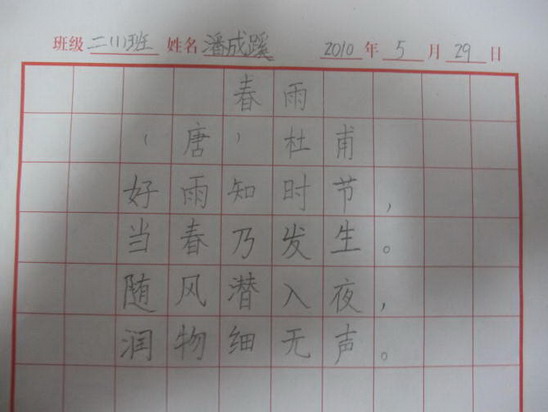 班级 二(1)班 姓名 潘成蹊 2010 年 5 月 29 日
春雨
(唐) 杜甫
好雨知时节,
当春乃发生。
随风潜入夜,
润物细无声。